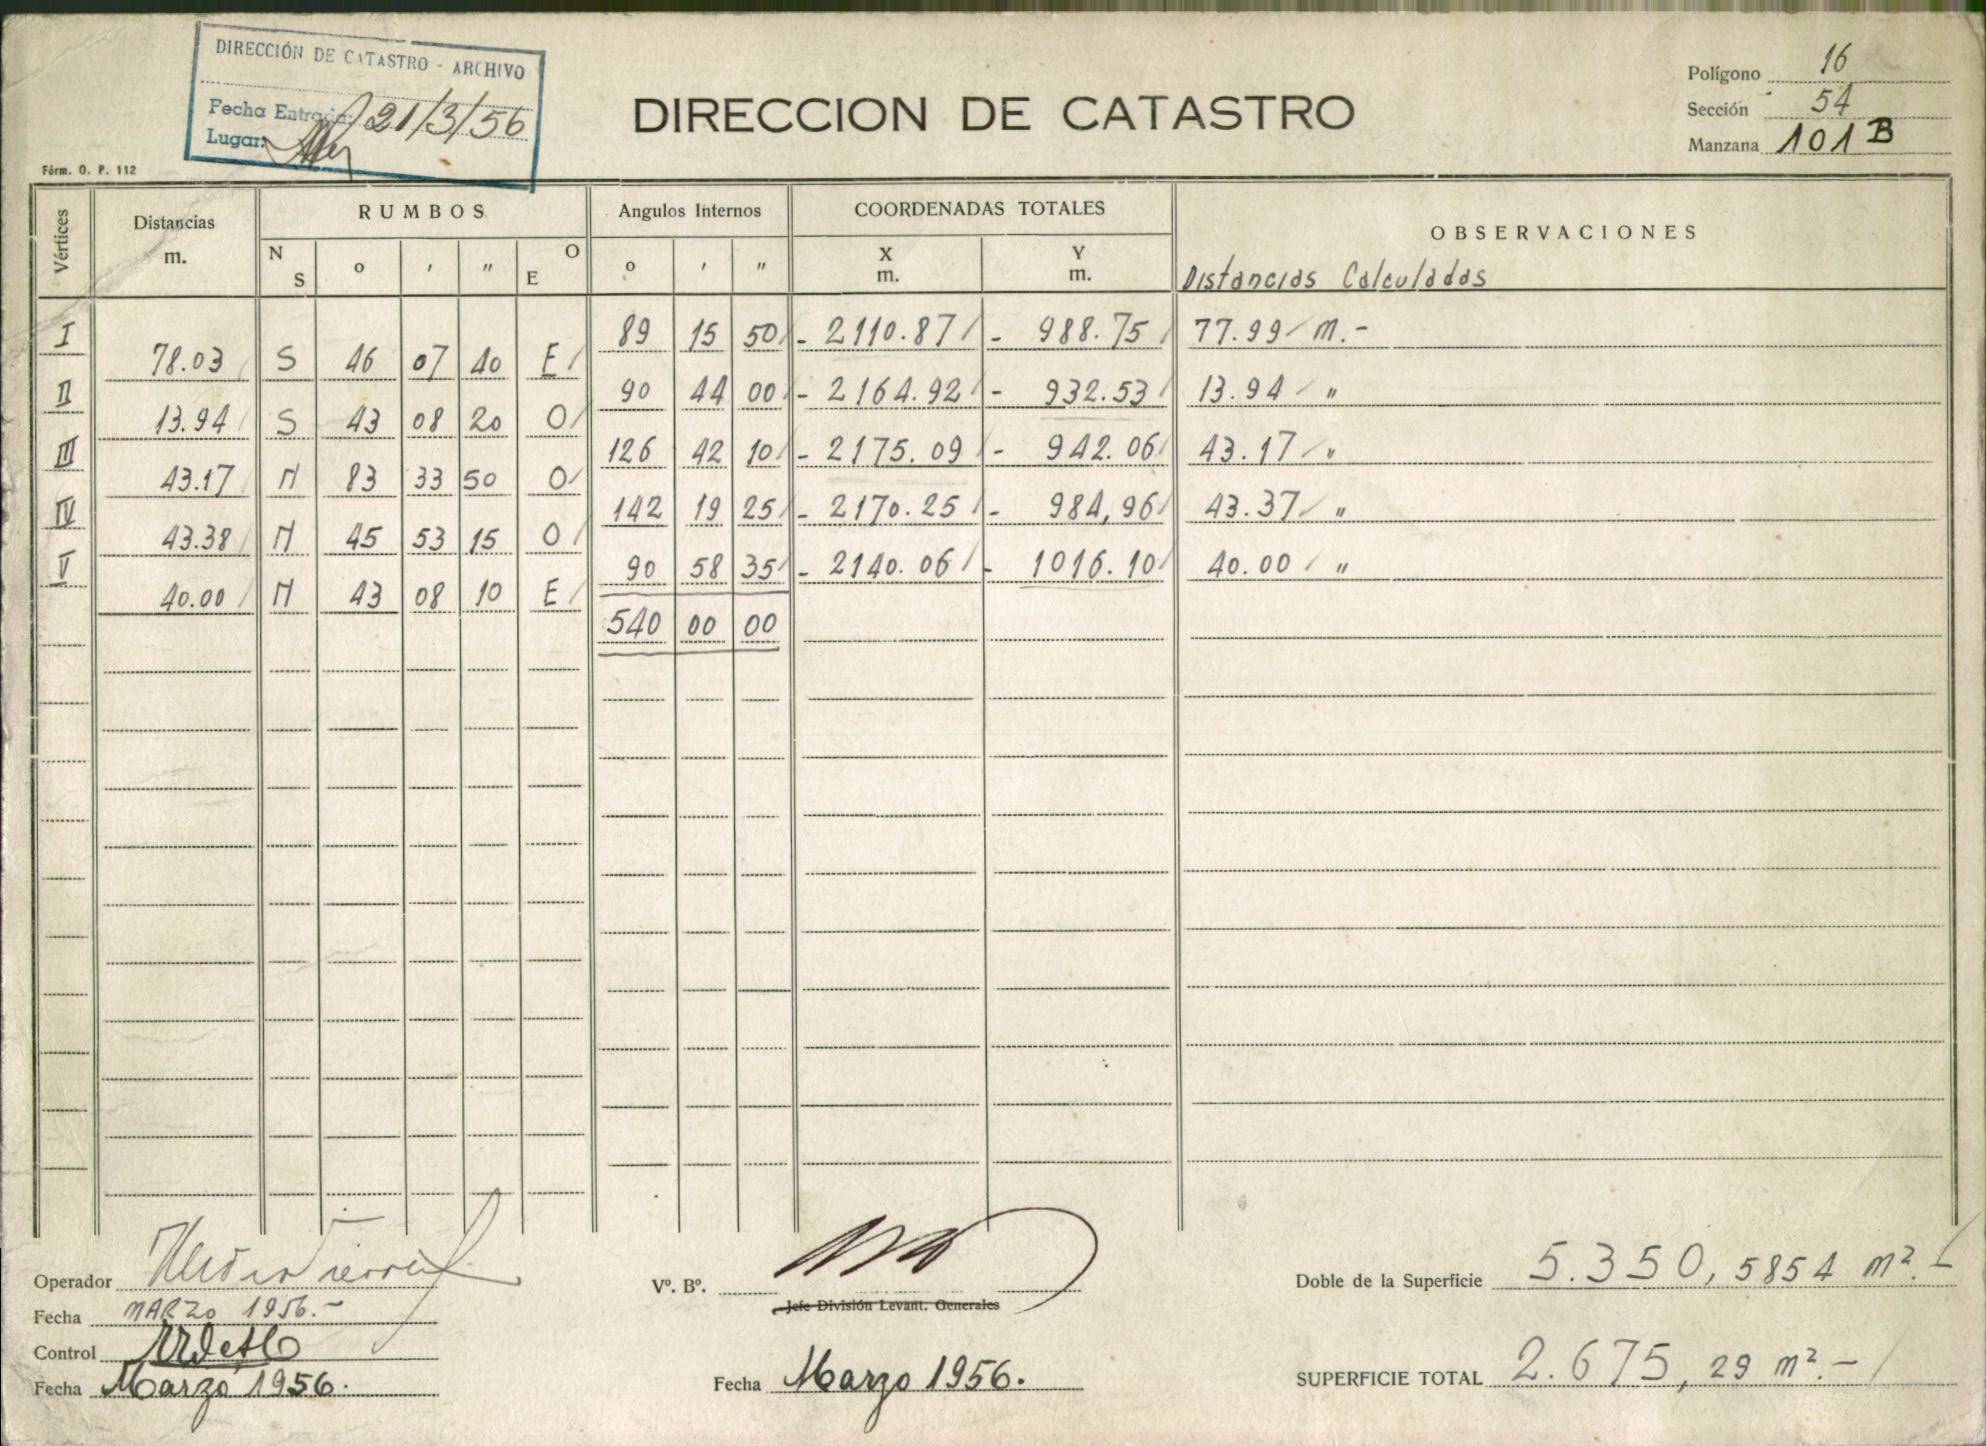 DIRECCIÓN DE CATASTRO - ARCHIVO
Fecha Entrada: 21/3/56
Lugar:
DIRECCION DE CATASTRO
Polígono 16
Sección 54
Manzana 101 B
Fórm. O. P. 112
Vértices Distancias m. RUMBOS Angulos Internos COORDENADAS TOTALES OBSERVACIONES
N S o ' " E O o ' " X m. Y m. Distancias Calculadas
I 89 15 50 - 2110.87 - 988.75 77.99 m.-
78.03 S 46 07 40 E
II 90 44 00 - 2164.92 - 932.53 13.94 "
13.94 S 43 08 20 O
III 126 42 10 - 2175.09 - 942.06 43.17 "
43.17 N 83 33 50 O
IV 142 19 25 - 2170.25 - 984,96 43.37 "
43.38 N 45 53 15 O
V 90 58 35 - 2140.06 - 1016.10 40.00 "
40.00 N 43 08 10 E
540 00 00
Operador
Fecha MARZO 1956.-
Control
Fecha Marzo 1956.
Vº. Bº.
Jefe División Levant. Generales
Fecha Marzo 1956.
Doble de la Superficie 5.350,5854 m².-
SUPERFICIE TOTAL 2.675,29 m².-